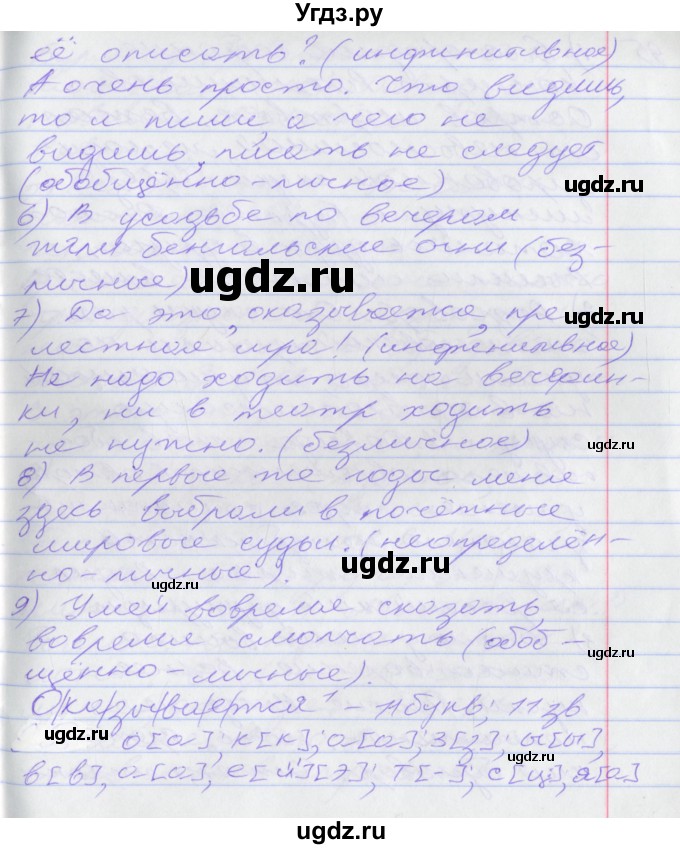 Угдз.ру
её описать? (инфинитивное)
А очень просто. Что видишь,
то и пиши, а чего не
видишь, писать не следует
(обобщённо-личное)
6) В усадьбе по вечерам
жгли бенгальские огни (без-
личные)
ugdz.ru
7) Да это, оказывается, пре-
лестная игра! (инфинитивное)
Не надо ходить на вечерин-
ки, ни в театр ходить
не нужно. (безличное)
ugdz.ru
8) В первые же годы меня
здесь выбрали в почётные
мировые судьи. (неопределён-
но-личные).
ugdz.ru
ugdz.ru
9) Умей вовремя сказать,
вовремя смолчать (обоб-
щённо-личные).
ugdz.ru
О/ка/зы/ва/е/тся – 11 букв, 11 зв
ugdz.ru
о[а]; к[к]; а[а]; з[з]; ы[ы],
ugdz.ru
в[в], а[а], е[й'][э]; т[-]; с[ц]; я[а]
ugdz.ru